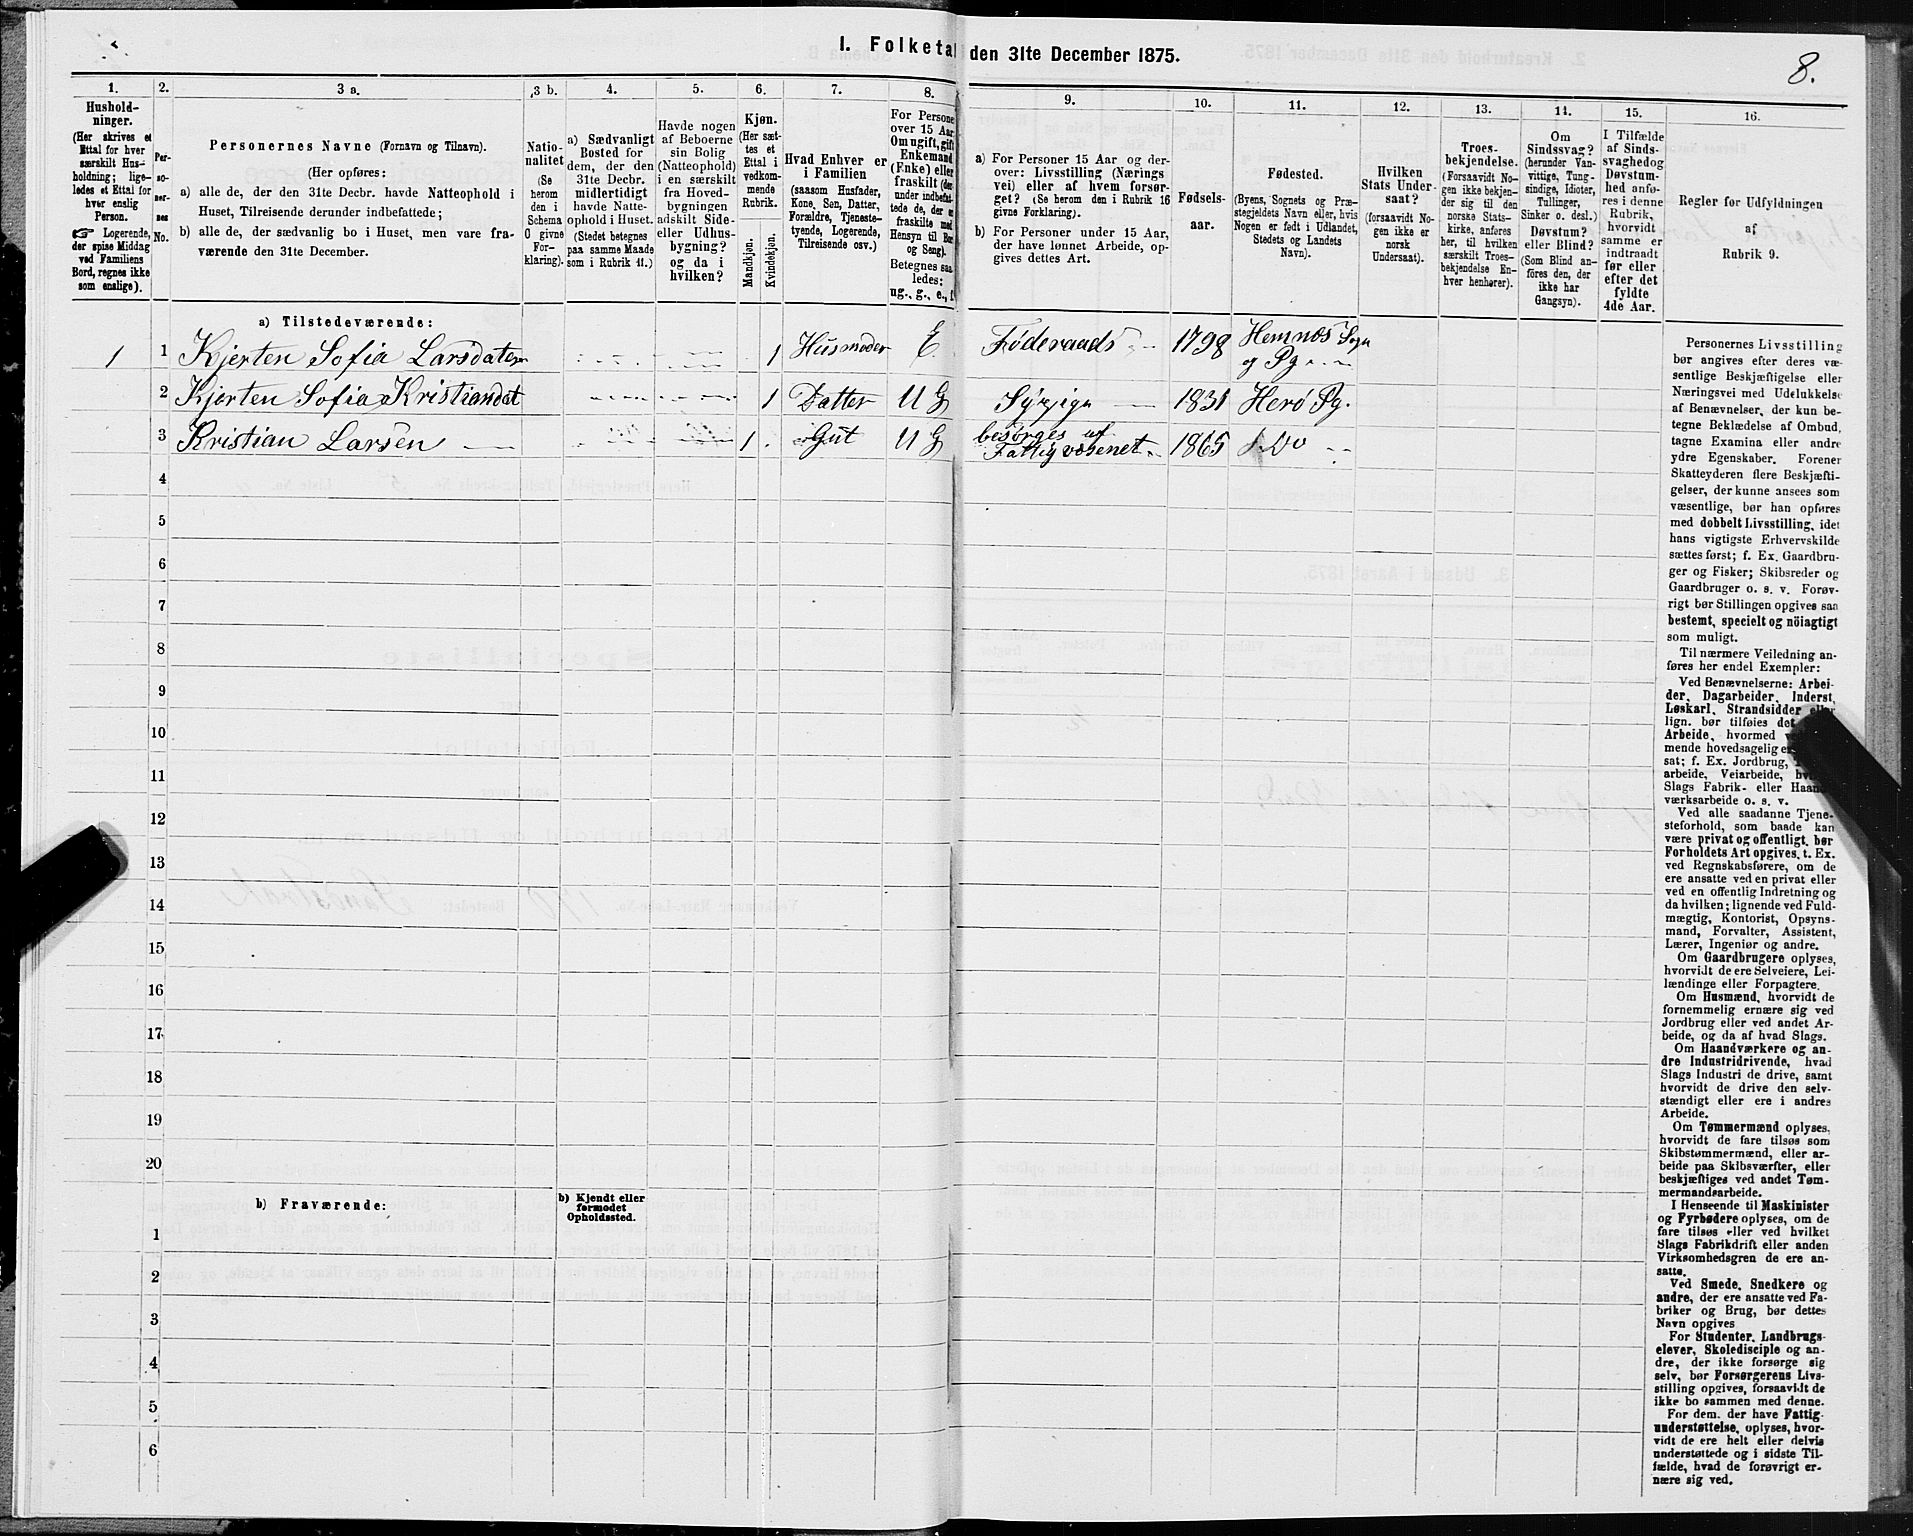 I. Folketal den 31te December 1875.
8.
1.
Hushold-
ninger.
(Her skrives et
Ettal for hver
særskilt Hus-
holdning; lige-
ledes et Ettal for
hver enslig
Person.
☞ Logerende,
der spise Middag
ved Familiens
Bord, regnes ikke
som enslige).
2.
Per-
so-
ner-
nes
No.
3 a.
Personernes Navne (Fornavn og Tilnavn).
(Her opføres:
a) alle de, der den 31te Decbr. havde Natteophold i
Huset, Tilreisende derunder indbefattede;
b) alle de, der sædvanlig bo i Huset, men vare fra-
værende den 31te December.
3 b.
Natio-
nalitet
(Se
herom
den i
Schema
O givne
For-
klaring).
4.
a) Sædvanligt
Bosted for
dem, der den
31te Decbr.
midlertidigt
havde Natte-
ophold i Huset.
(Stedet betegnes
paa samme Maade
som i Rubrik 11.)
5.
Havde nogen
af Beboerne
sin Bolig
(Natteophold)
i en særskilt
fra Hoved-
bygningen
adskilt Side-
eller Udhus-
bygning?
og da i
hvilken?
6.
Kjøn.
(Her sæt-
tes et
Ettal i
vedkom-
mende
Rubrik.
Mandkjøn.
Kvindekjøn.
7.
Hvad Enhver er
i Familien
(saasom Husfader,
Kone, Søn, Datter,
Forældre, Tjeneste-
tyende, Logerende,
Tilreisende osv.)
8.
For Persone
over 15 Aar
Om ugift, gift
Enkemand
(Enke) eller
fraskilt (der-
under indbefat-
tede de, der er
fraskilte med
Hensyn til Bor
og Seng).
Betegnes saa
ledes:
ug., g., e., f.
9.
a) For Personer 15 Aar og der-
over: Livsstilling (Nærings
vei) eller af hvem forsør-
get? (Se herom den i Rubrik 16
givne Forklaring).
b) For Personer under 15 Aar,
der have lønnet Arbeide, op-
gives dettes Art.
10.
Fødsels-
aar.
11.
Fødested.
(Byens, Sognets og Præ-
stegjeldets Navn eller, hvis
Nogen er født i Udlandet,
Stedets og Landets
Navn).
12.
Hvilken
Stats Under-
saat?
(forsaavidt No-
gen ikke er
norsk
Undersaat).
13.
Troes-
bekjendelse.
(Forsaavidt No-
gen ikke bekjen-
der sig til den
norske Stats-
kirke, anføres
her, til hvilken
særskilt Troes-
bekjendelse En-
hver henhører).
14.
Om
Sindssvag?
(herunder Van-
vittige, Tung-
sindige, Idioter,
Tullinger,
Sinker o. desl.)
Døvstum?
eller Blind?
(Som Blind an-
føres den, der
ikke har
Gangsyn).
15.
I Tilfælde
af Sinds-
svaghedog
Døvstum-
hed anfø-
res i denne
Rubrik,
hvorvidt
samme er
indtraadt
før eller
efter det
fyldte
4de Aar.
16.
Regler for Udfyldningen
af
Rubrik 9.
a) Tilstedeværende:
1 1 Kjersten Sofia Larsdater 1 Husmoder E. Føderaads 1798 Hemnæs Sogn
og Pg
2 Kjersten Sofia Kristiandat 1 Datter U G Syrpige 1831 Herø Pg.
3 Kristian Larsen 1 Gut U G besørges af
Fattigvæsenet 1865 Do
4
5
6
7
8
9
10
11
12
13
14
15
16
17
18
19
20
b) Fraværende:
b) Kjendt eller
formodet
Opholdssted.
1
2
3
4
5
6
Personernes Livsstilling
bør angives efter deres væ-
sentlige Beskjæftigelse eller
Næringsvei med Udelukkelse
af Benævnelser, der kun be-
tegne Beklædelse af Ombud,
tagne Examina eller andre
ydre Egenskaber. Forener
Skatteyderen flere Beskjæfti-
gelser, der kunne ansees som
væsentlige, bør han opføres
med dobbelt Livsstilling, idet
hans vigtigste Erhvervskilde
sættes først; f. Ex. Gaardbru-
ger og Fisker; Skibsreder og
Gaardbruger o. s. v. Forøv-
rigt bør Stillingen opgives saa
bestemt, specielt og nöiagtigt
som muligt.
Til nærmere Veiledning an-
føres her endel Exempler:
Ved Benævnelserne: Arbei-
der, Dagarbeider, Inderst,
Løskarl, Strandsidder eller
lign. bør tilføies det
Arbeide, hvormed
mende hovedsagelig er
sat; f. Ex. Jordbrug,
arbeide, Veiarbeide,
Slags Fabrik- eller Haand-
værksarbeide o. s. v.
Ved alle saadanne Tjene-
steforhold, som baade kan
være privat og offentligt, bør
Forholdets Art opgives, t. Ex.
ved Regnskabsførere, om de
ere ansatte ved en privat eller
ved en offentlig Indretning og
da hvilken; lignende ved Fuld-
mægtig, Kontorist, Opsyns-
mand, Forvalter, Assistent,
Lærer, Ingeniør og andre.
Om Gaardbrugere oplyses,
hvorvidt de ere Selveiere, Lei-
lændinge eller Forpagtere.
Om Husmænd, hvorvidt de
fornemmelig ernære sig ved
Jordbrug eller ved andet Ar-
beide, og da af hvad Slags.
Om Haandværkere og an-
dre Industridrivende, hvad
Slags Industri de drive, samt
hvorvidt de drive den selv-
stændigt eller ere i andres
Arbeide.
Om Tømmermænd oplyses,
hvorvidt de fare tilsøs som
Skibstømmermænd, eller ar-
beide paa Skibsværfter, eller
beskjæftiges ved andet Tøm-
mermandsarbeide.
I Henseende til Maskinister
og Fyrbødere oplyses, om de
fare tilsøs eller ved hvilket
Slags Fabrikdrift eller anden
Virksomhedsgren de ere an-
satte.
Ved Smede, Snedkere og
andre, der ere ansatte ved Fa-
briker og Brug, bør dettes
Navn opgives
For Studenter, Landbrugs-
elever, Skoledisciple og an-
dre, der ikke forsørge sig
selv, bør Forsørgerens Livs-
stilling opgives, forsaavidt de
ikke bo sammen med denne.
For dem, der have Fattig-
understøttelse, oplyses, hvor-
vidt de ere helt eller delvis
understøttede og i sidste Til-
fælde, hvad de forøvrigt er-
nære sig ved.